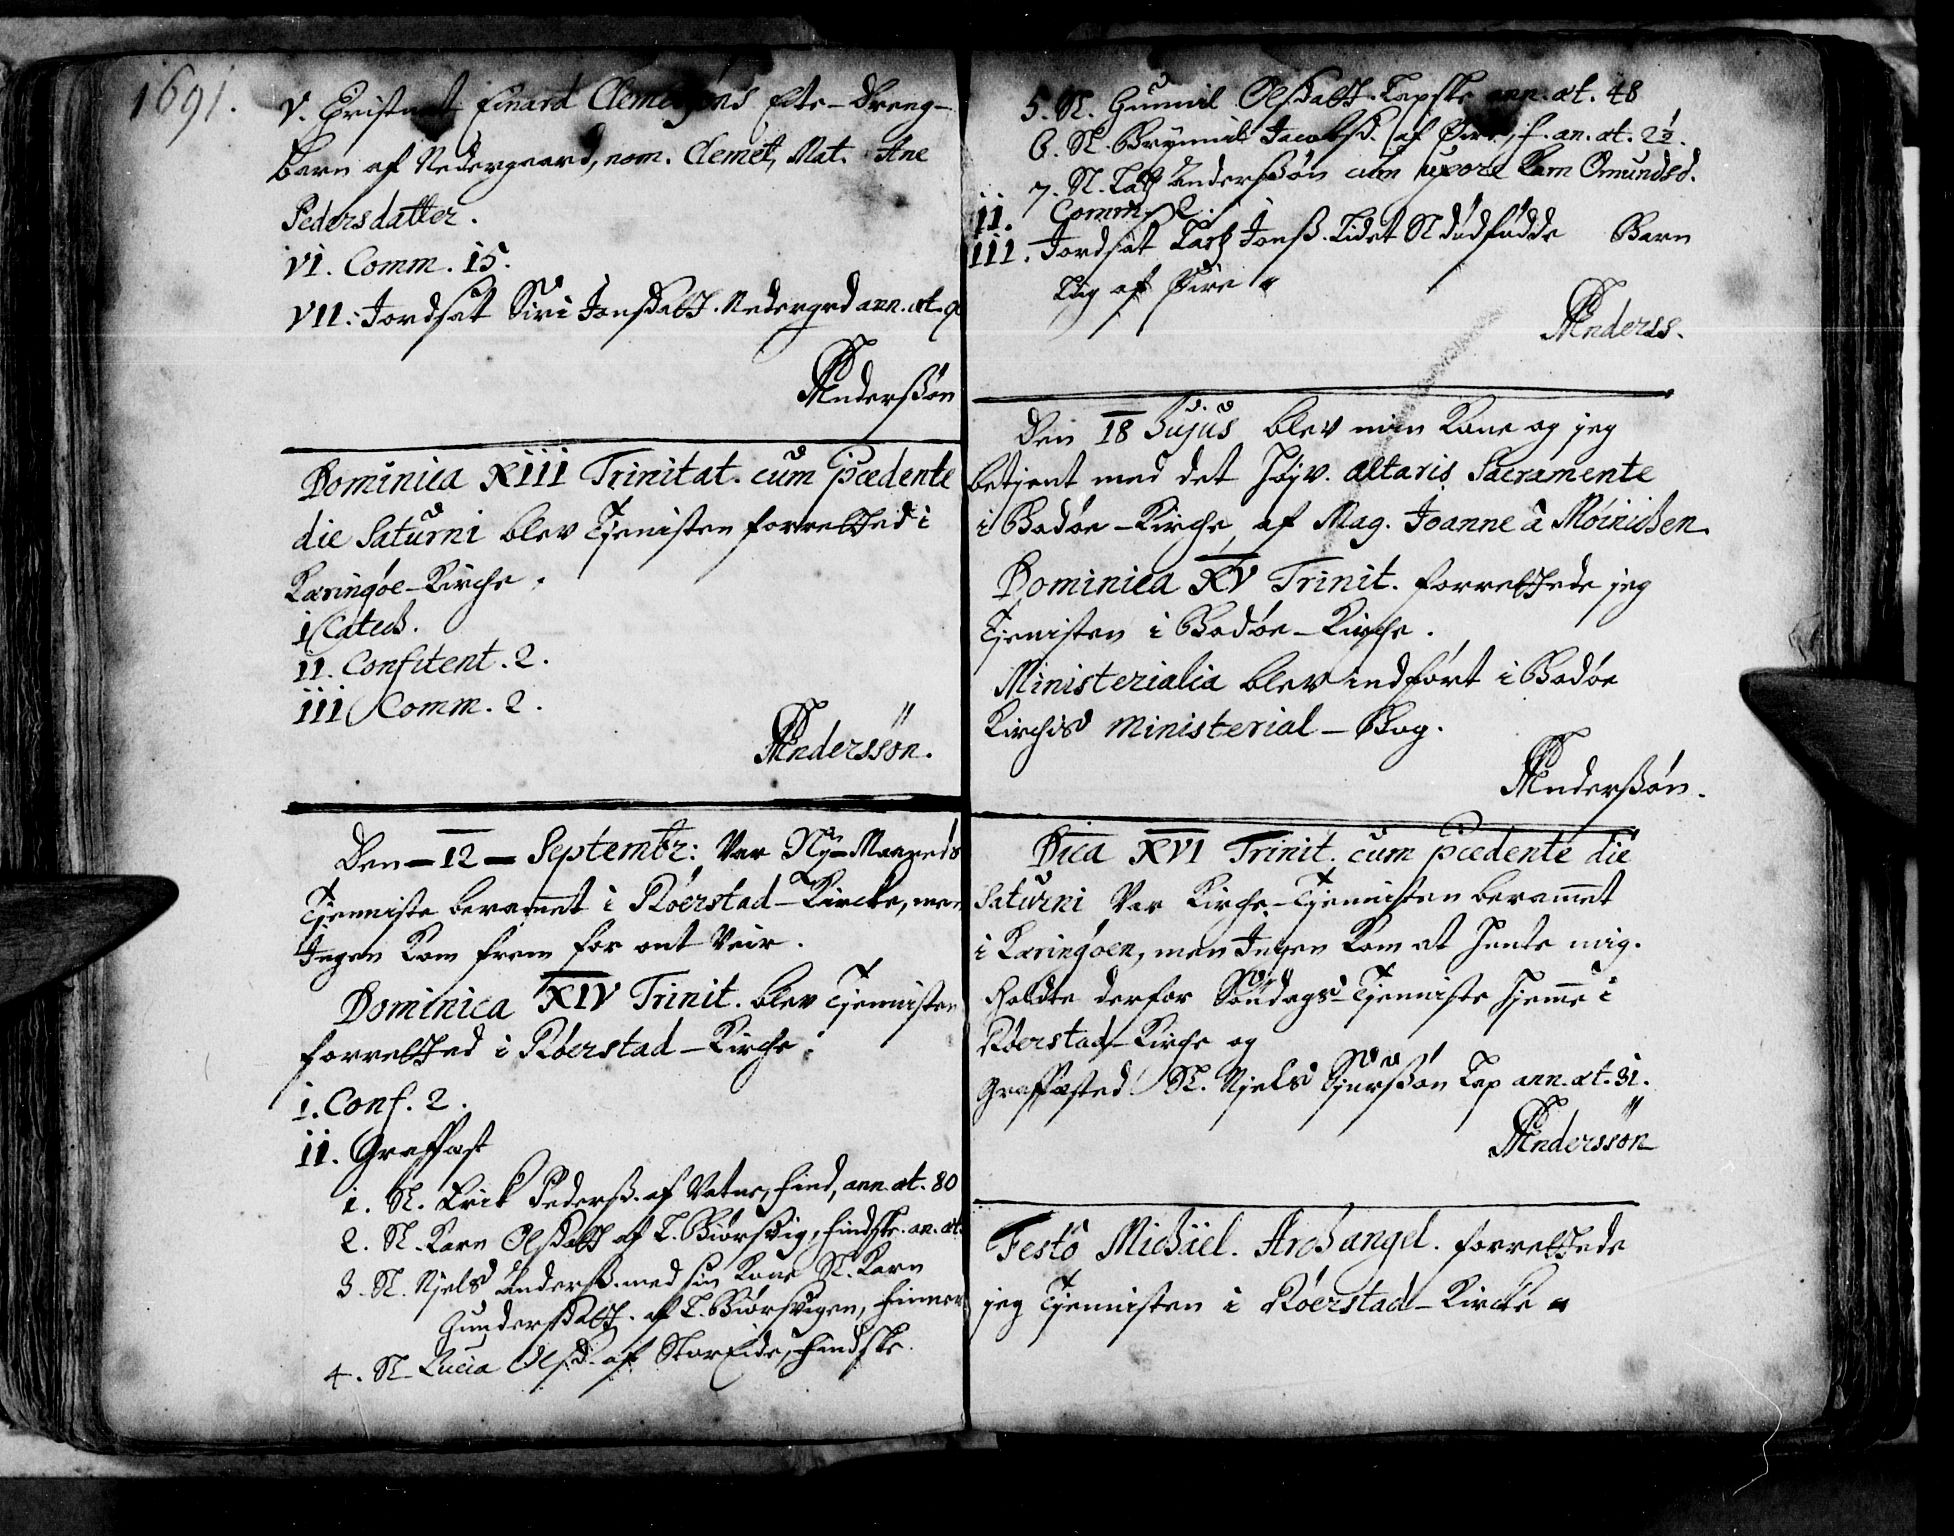 1691.
V. Christnet Einard Clemetsøns Ecte-Dreng-
barn af Nedergaard, nom. Clemet, Mat. Ane
Pedersdatter.
VI. Comm. 15.
VII. Jordsat Siri Jonsdatt. Nedergrd ann. æt. 9
Anderssøn
Dominica XIII Trinitat. cum pcedente
die Saturni blev Tjenisten forretted i
Karingøe-Kirche.
I Catech.
II. Confitent. 2.
III Comm. 2.
Anderssøn.
Den 12 Septembr: Var Ny-Maaneds
Tjenniste beramet i Røerstad-Kircke, men
Ingen Kom frem for ont Veir.
Dominica XIV Trinit. blev Tjennisten
forretted i Røerstad-Kirche.
I. Conf. 2.
II. Graffæst
1. Sl. Erik Pederss. af Vatne, find, ann. æt. 80
2. Sl. Karn Olsdatt af L. Biørsvig, findske an. æt.
3. Sl. Njels Anderss. med sin Kone Sl. Karn
Gundersdatt. af L. Biørsvigen, finner
4. Sl. Lucia Olsd. af Storeide, findske.
5. Sl. Gunnil Olsdatt. Lapske ann. æt. 48
6. Sl. Brynnil Jacobsd. af Øire, f. an. æt. 2½.
7. Sl. Lass Anderssøn cum uxore Karn Omundsd.
II. Comm. 2.
III. Jordsat Lars Jonss. Lidet Sl dødfødde Barn
Lap af Øire
Anderss.
Den 18 Hujus blev min Kone og jeg
betjent med det Højv. Altaris Sacramente
i Bodøe-Kirche, af Mag. Joanne à Møinichen.
Dominica XV Trinit. forrettede jeg
Tjenisten i Bodøe-Kirche.
Ministerialia blev indført i Bodøe
Kirches Ministerial-Bog.
Anderssøn.
Dica XVI Trinit. cum pcedente die
Saturni Var Kirche-Tjennisten beramet
i Karingøen, men Ingen Kom at Hente mig.
Holdte derfor Søndags-Tjenniste Hjemme i
Røerstad-Kirche og
Graffæsted Sl. Njels Siurssøn Lap ann. æt. 31.
Anderssøn
Festo Michäel. Archangel. forrettede
jeg Tjennisten i Røerstad-Kircke